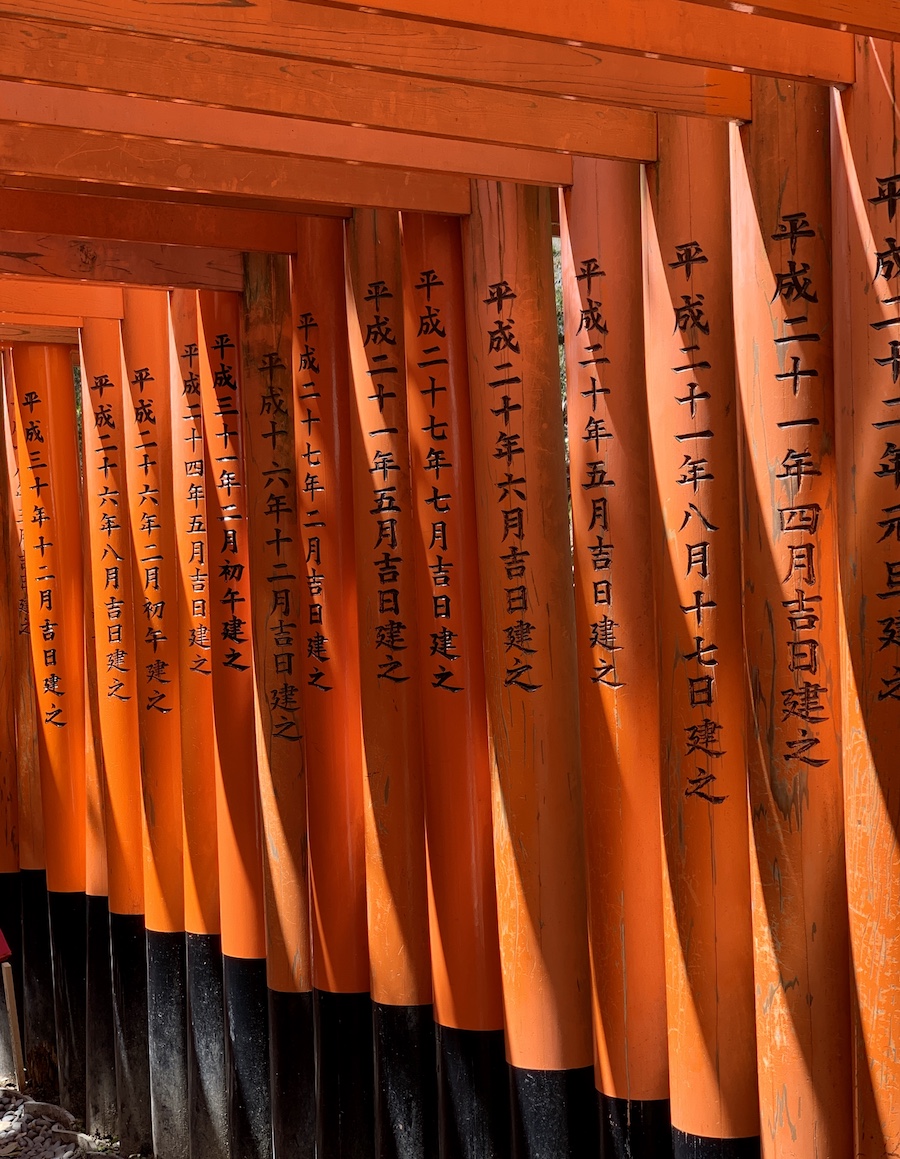 平成二十二年元旦建之
平成二十一年四月吉日建之
平成二十一年八月十七日建之
平成二十年五月吉日建之
平成二十年六月吉日建之
平成二十七年七月吉日建之
平成二十一年五月吉日建之
平成二十七年二月吉日建之
平成十六年十二月吉日建之
平成三十一年二月初午建之
平成二十四年五月吉日建之
平成二十六年二月初午建之
平成二十六年八月吉日建之
平成三十年十二月吉日建之